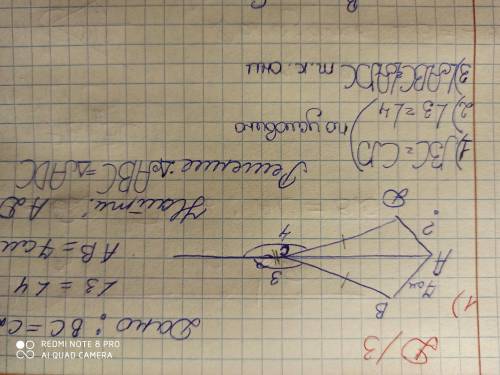 Д/З
1)
B
A
7см
?
D
C
3
4
Дано: BC = C
∠3 = ∠4
AB = 7см
Найти: AD
Решение: △ABC = △ADC
1) BC = CD
2) ∠3 = ∠4
по условию
3) △ABC = △ADC т.к.
B
REDMI NOTE 8 PRO
AI QUAD CAMERA